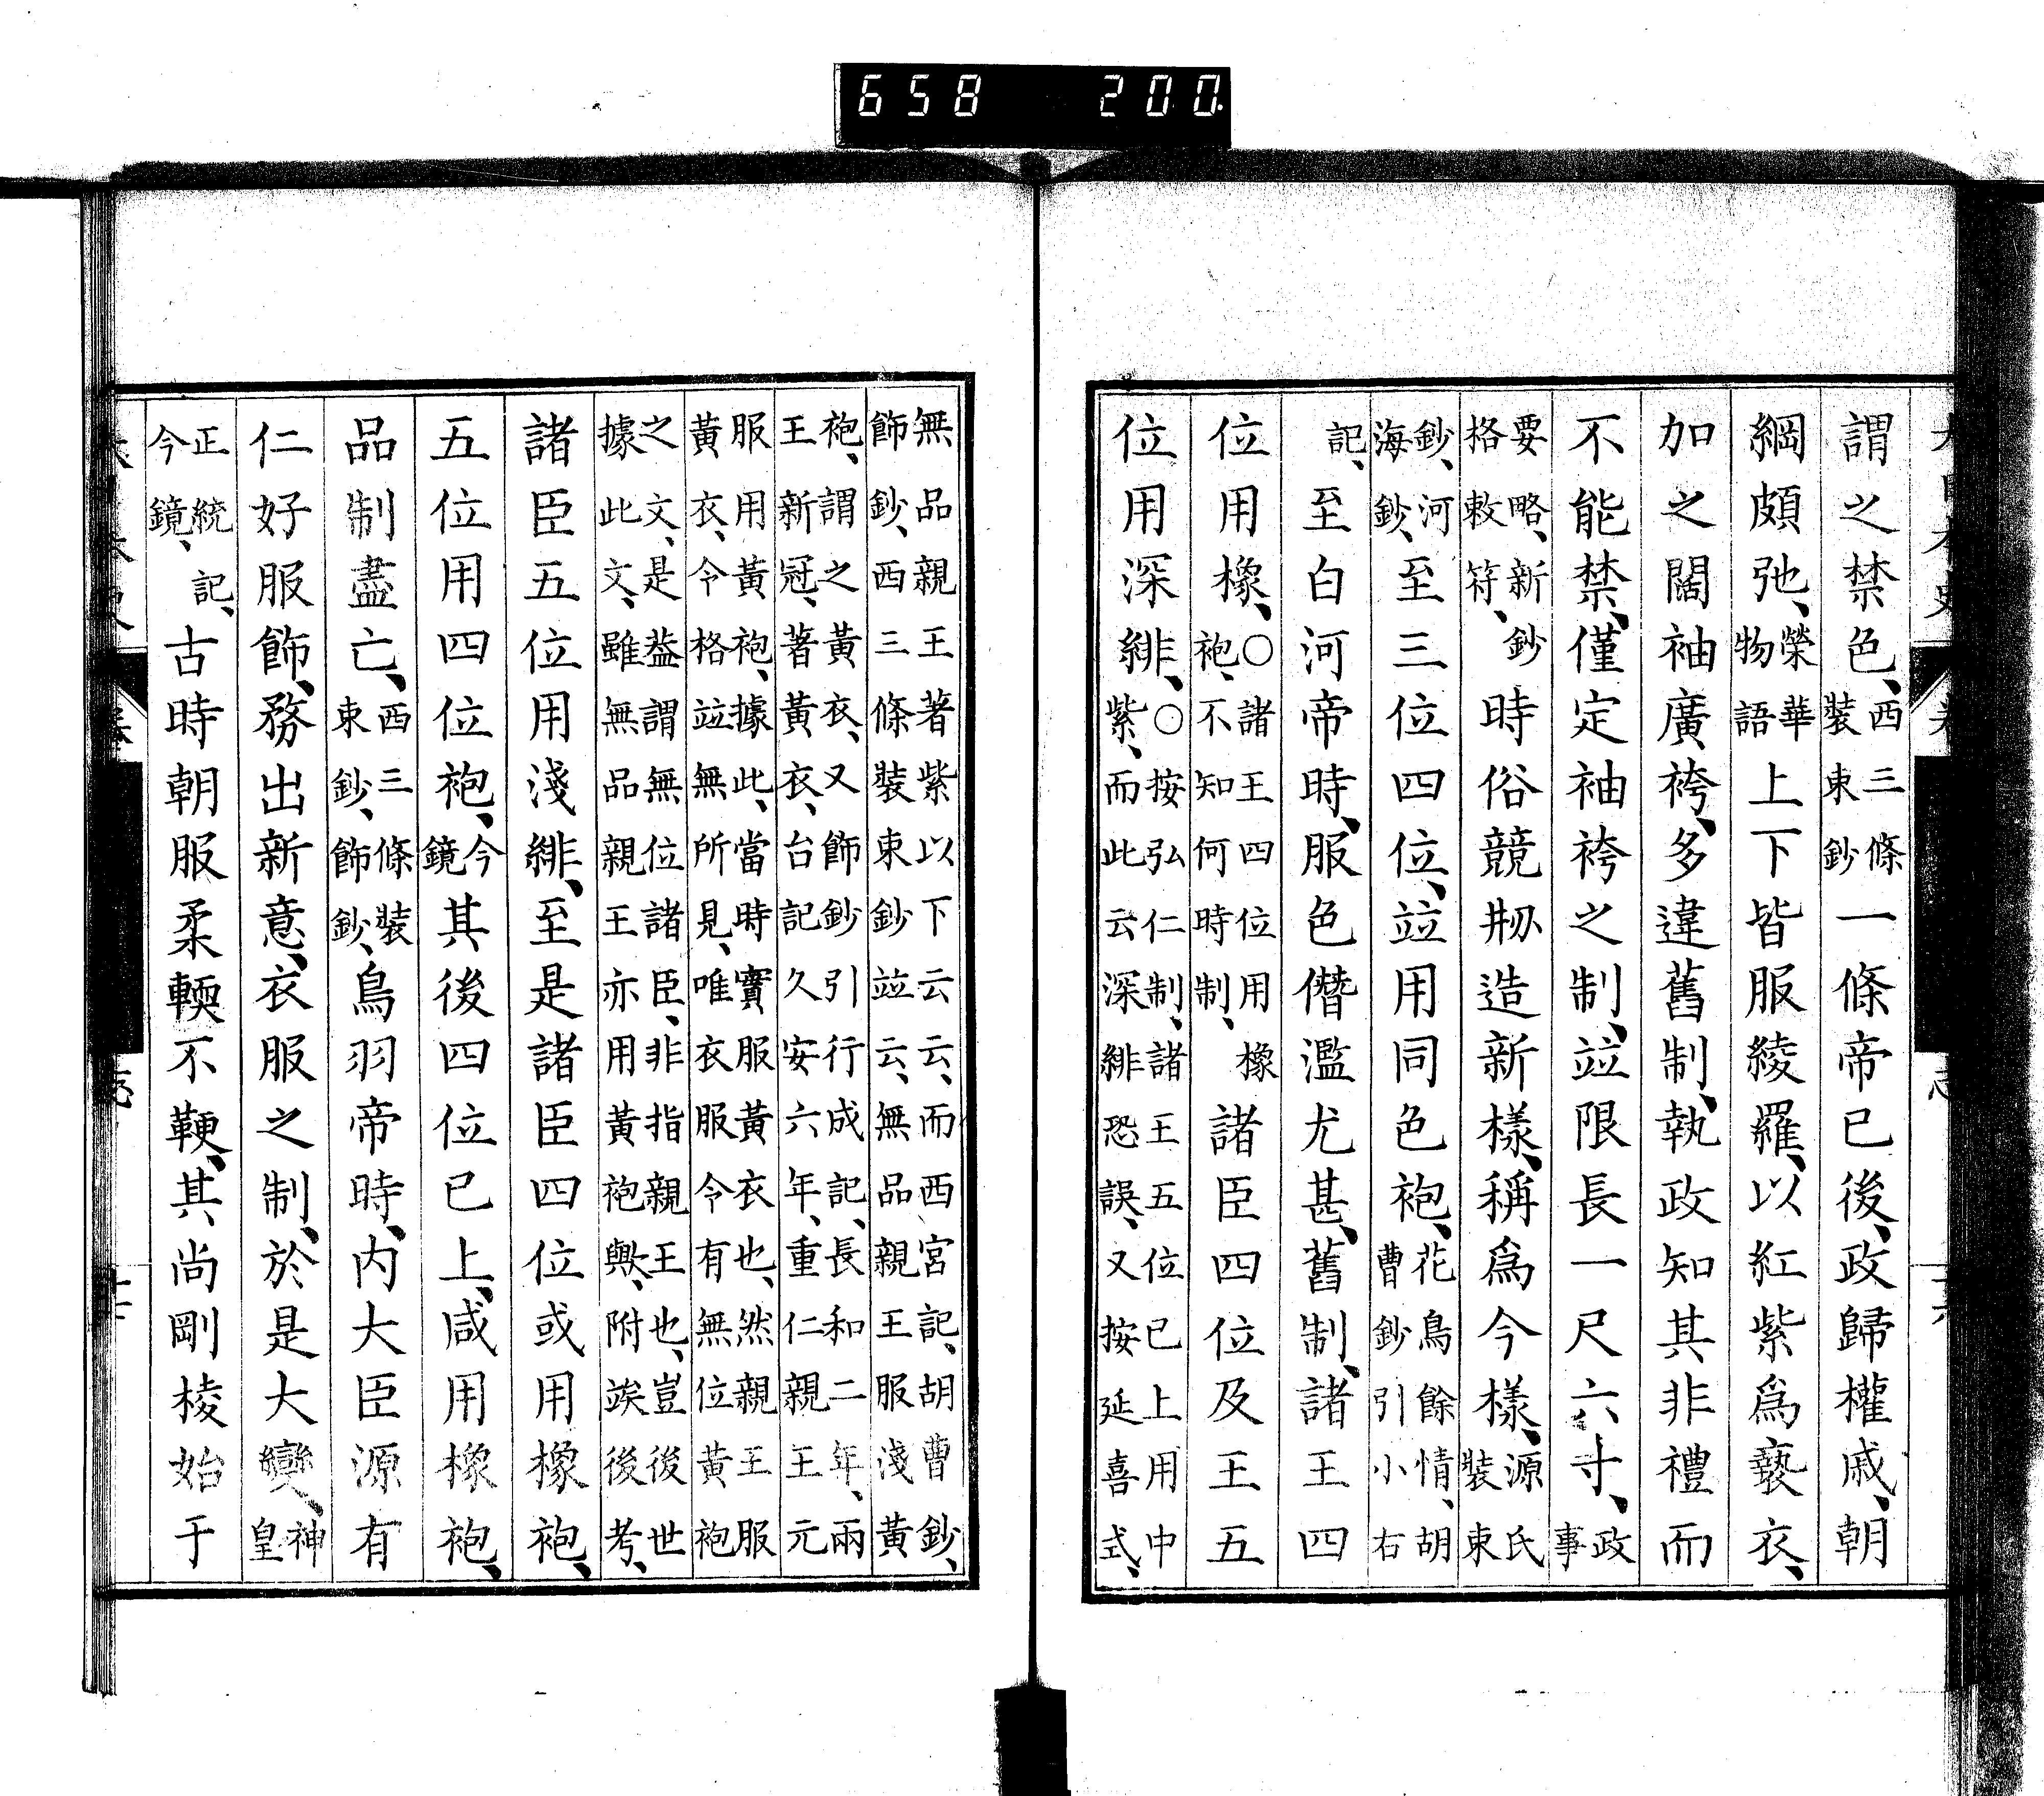 658 200.
謂之禁色、西三條裝束鈔一條帝已後、政歸權戚、朝
綱頗弛、榮華物語上下皆服綾羅、以紅紫爲褻衣、
加之闊袖廣袴、多違舊制、執政知其非禮而
不能禁、僅定袖袴之制、竝限長一尺六寸、政事
要略、新鈔格敕符、時俗競刱造新樣、稱爲今樣、源氏裝束
鈔、河海鈔、至三位四位、竝用同色袍、花鳥餘情、胡曹鈔引小右
記、至白河帝時、服色僭濫尤甚、舊制、諸王四
位用橡、○諸王四位用橡袍、不知何時制、諸臣四位及王五
位用深緋、○按弘仁制、諸王五位已上用中紫、而此云深緋恐誤、又按延喜式、
無品親王著紫以下云云、而西宮記、胡曹鈔、飾鈔、西三條裝束鈔竝云、無品親王服淺黃
袍、謂之黃衣、又飾鈔引行成記、長和二年、兩王新冠、著黃衣、台記久安六年、重仁親王元
服用黃袍、據此、當時實服黃衣也、然親王服黃衣、令格竝無所見、唯衣服令有無位黃袍
之文、是蓋謂無位諸臣、非指親王也、豈後世據此文、雖無品親王亦用黃袍歟、附竢後考、
諸臣五位用淺緋、至是諸臣四位或用橡袍、
五位用四位袍、今鏡其後四位已上、咸用橡袍、
品制盡亡、西三條裝束鈔、飾鈔、鳥羽帝時、内大臣源有
仁好服飾、務出新意、衣服之制、於是大變、神皇
正統記、今鏡、古時朝服柔輭不鞕、其尚剛棱始于